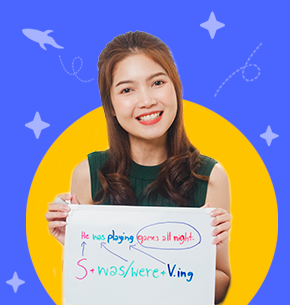 He was playing games all night.
S+was/were+V.ing